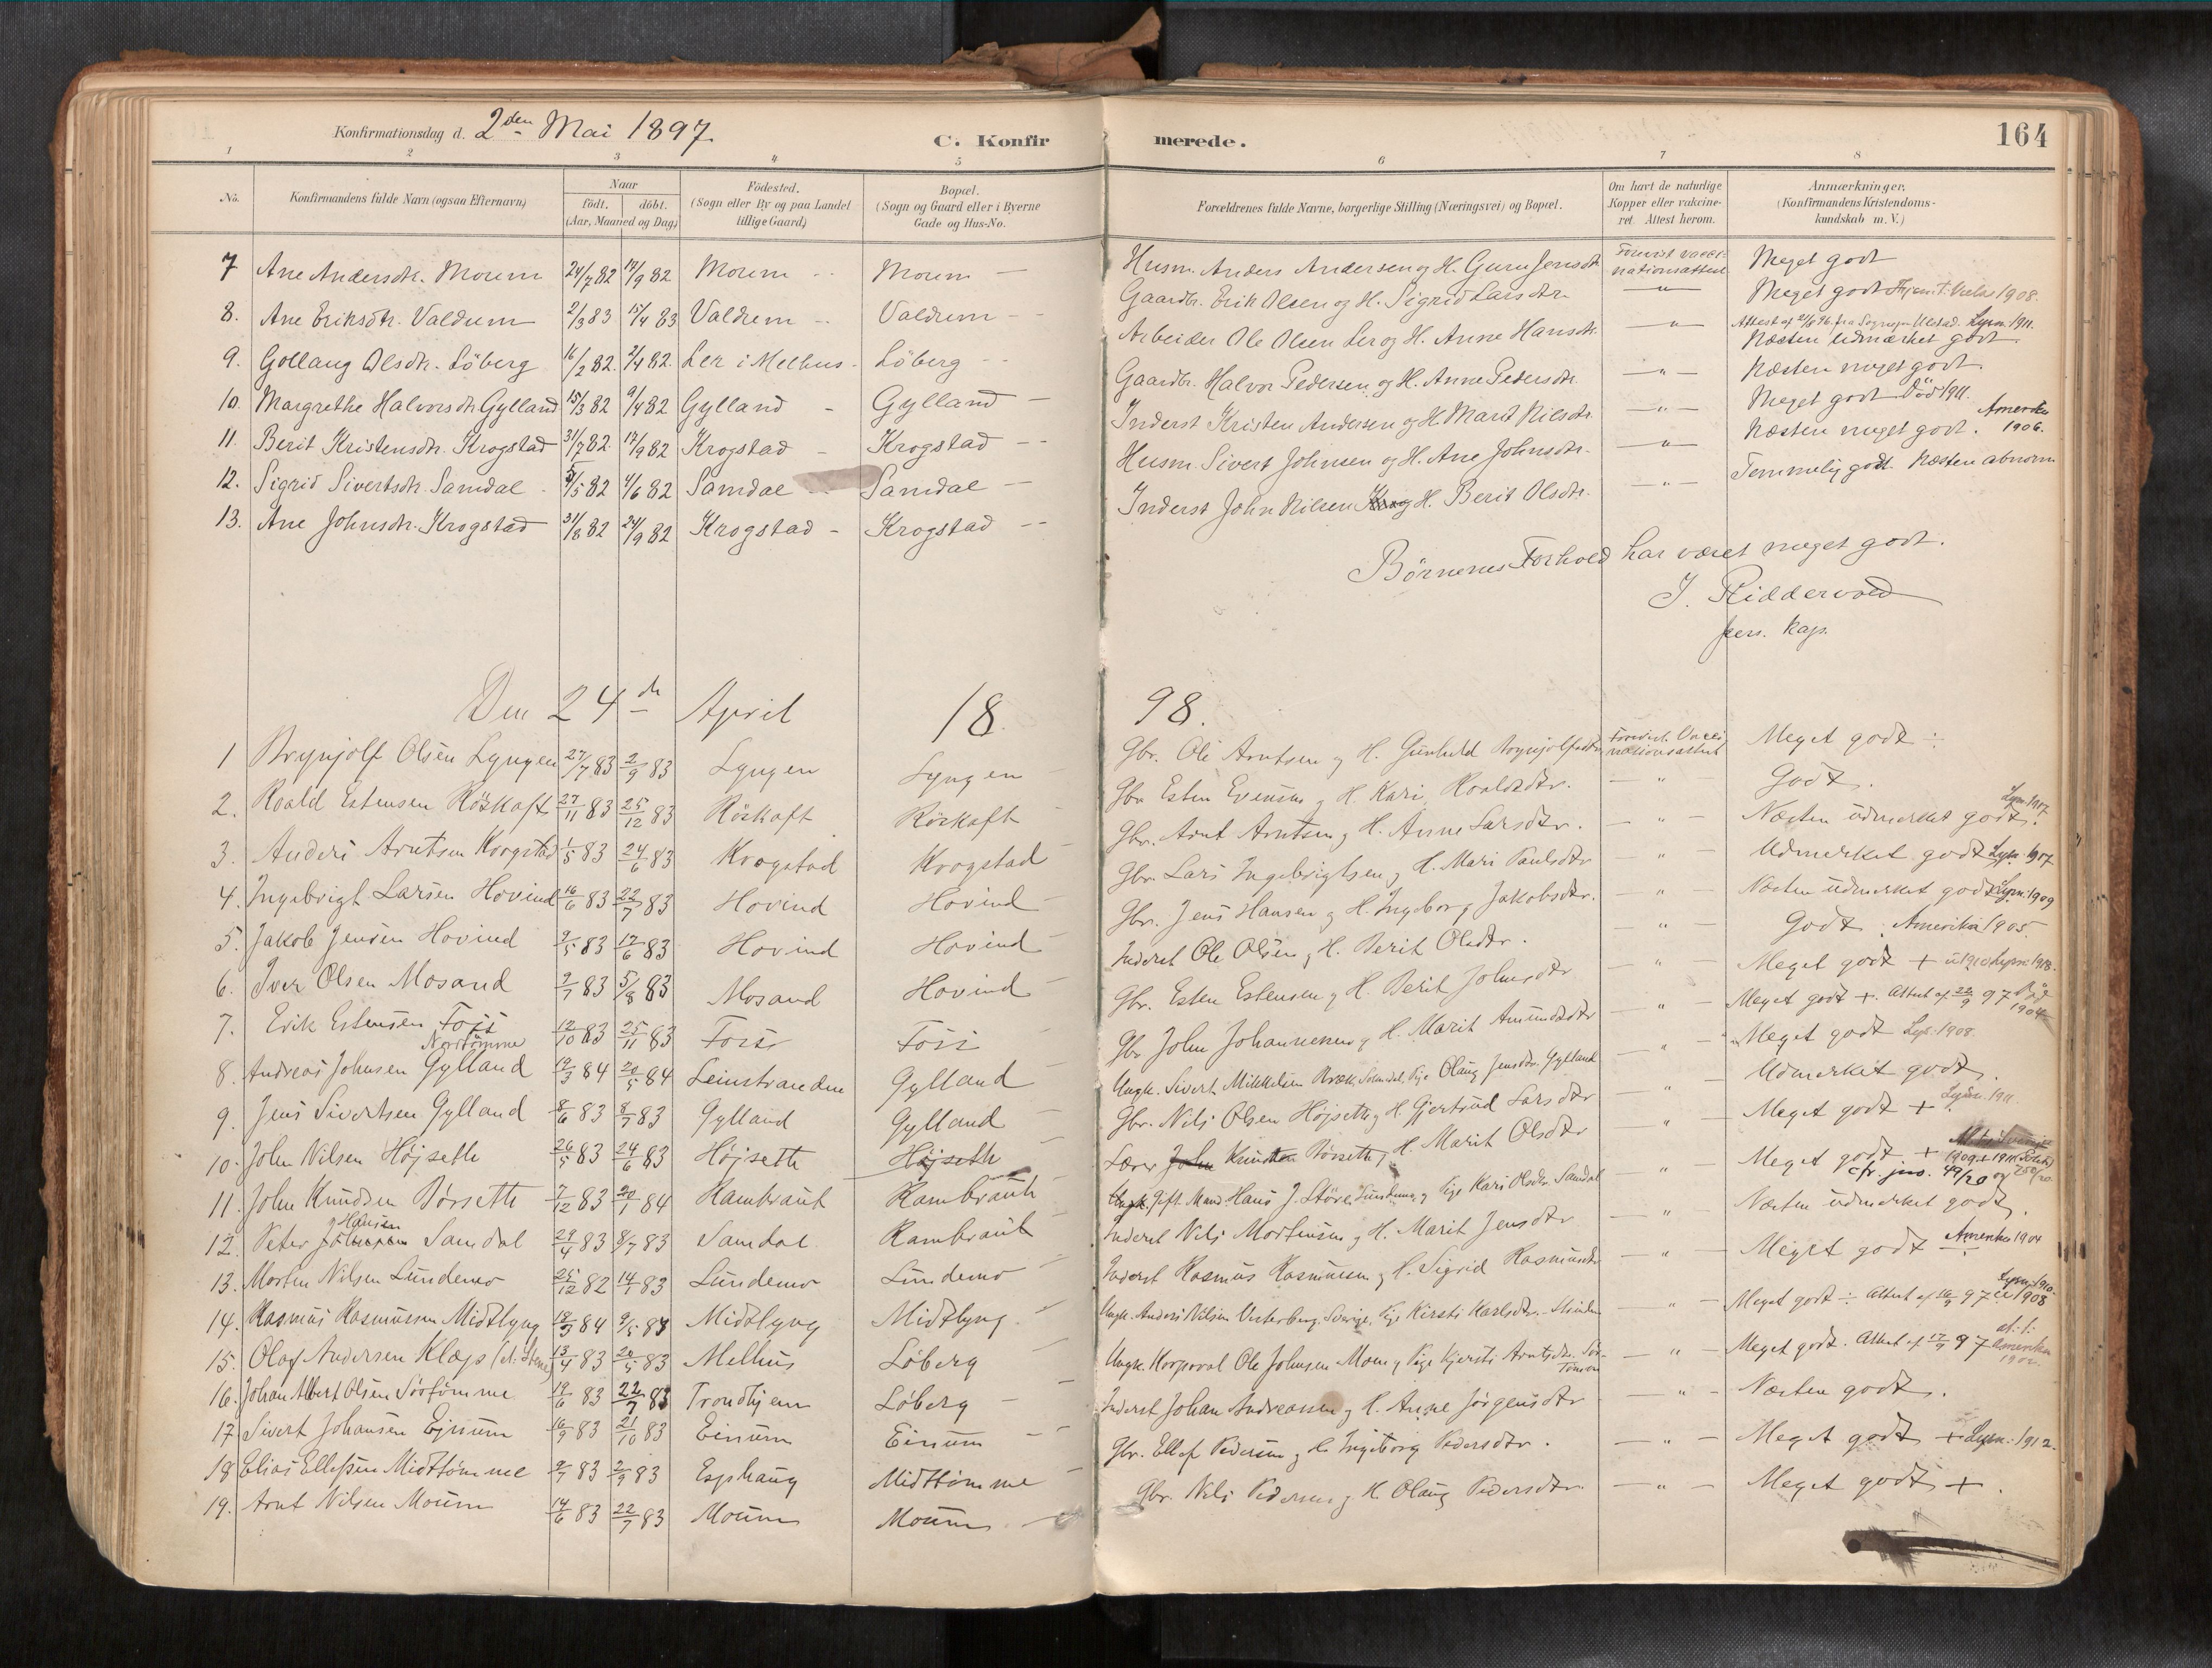 Konfirmationsdag d. 2den Mai 1897.
C. Konfirmerede.
164
1 2 3 4 5 6 7 8
No.
Konfirmandens fulde Navn (ogsaa Efternavn)
Naar
födt. döbt.
(Aar, Maaned og Dag)
Födested.
(Sogn eller By og paa Landet tillige Gaard)
Bopæl.
(Sogn og Gaard eller i Byerne Gade og Hus-No.
Forældrenes fulde Navne, borgerlige Stilling (Næringsvei) og Bopæl.
Om havt de naturlige Kopper eller vakcineret. Attest herom.
Anmærkninger.
(Konfirmandens Kristendomskundskab m. V.)
7 Ane Andersdtr. Moum 24/7 82 17/9 82 Moum Moum Husm. Anders Andersen og H. Guru Jensdtr. Forevist vaccinationsattest Meget godt
8. Ane Eriksdtr. Valdum 2/3 83 15/4 83 Valdum Valdum Gaardbr. Erik Olsen og H. Sigrid Larsdtr. " Meget godt 1908.
9. Gollaug Olsdtr. Löberg 16/2 82. 2/4 82. Ler i Melhus Löberg Arbeider Ole Olsen Ler og H. Anne Hansdtr. " Attest af 21/8 96 fra Sognepr. Ulstad. Lysn. 1911. Næsten udmærket godt.
10. Margrethe Halvorsdtr. Gylland 15/3 82 9/4 82 Gylland Gylland Gaardbr. Halvor Pedersen og H. Anne Pedersdtr. " Næsten meget godt.
11. Berit Kristensdtr. Krogstad 31/7 82. 17/9 82 Krogstad Krogstad Inderst Kristen Andersen og H. Marit Nilsdtr. " Meget godt Död 1911.
12. Sigrid Sivertsdtr. Samdal /5 82 4/6 82 Samdal Samdal Husm. Sivert Johnsen og H. Ane Johnsdtr. " Næsten meget godt. Amerika 1906.
13. Ane Johnsdtr. Krogstad 31/8 82 24/9 82 Krogstad Krogstad Inderst John Nilsen og H. Berit Olsdtr. " Temmelig godt. Næsten abnorm
Börnenes Forhold har været meget godt.
J. Riddervold
pers. Kap.
Den 24de April 1898.
1 Brynjolf Olsen Lyngen 27/7 83 2/9 83 Lyngen Lyngen Gbr. Ole Arntsen og H. Gunhild Brynjolfsdtr. Forevist Vaccinationsattest Meget godt ÷
2. Roald Estensen Röskaft 27/11 83 25/12 83 Röskaft Röskaft Gbr Esten Evensen og H. Kari Roaldsdtr. " Godt.
3. Anders Arntsen Krogstad 1/5 83 24/6 83 Krogstad Krogstad Gbr. Arnt Arntsen og H. Anne Larsdtr. " Næsten udmerket godt. Lysn. 1907
4. Ingebrigt Larsen Hovind 16/6 83 22/7 83 Hovind Hovind Gbr. Lars Ingebrigtsen og H. Mari Paulsdtr " Udmerket godt Lysn. 1907
5. Jakob Jensen Hovind 9/5 83 17/6 83 Hovind Hovind Gbr. Jens Hansen og H. Ingeborg Jakobsdtr. " Næsten udmerket godt Lysn. 1909
6. Iver Olsen Mosand 9/7 83 5/8 83 Mosand Hovind Inderst Ole Olsen og H. Berit Olsdtr. " Godt. Amerika 1905.
7. Erik Estensen Foss 12/10 83 25/11 83 Foss Foss Gbr. Esten Estensen og H. Berit Johnsdtr " Meget godt + Lysn. 1918.
8. Andreas Johnsen Gylland Nordtömme 19/3 84 20/5 84 Leinstranden Gylland Gbr John Johannesen og H. Marit Amundsdtr " Meget godt +. Attest af 22/9 97 Död 1904
9. Jens Sivertsen Gylland 8/6 83 8/7 83 Gylland Gylland Ungk. Sivert Mikkelsen Samdal, Pige Olaug Jensdtr. Gylland " Meget godt Lys. 1908.
10. John Nilsen Höjseth 26/5 83 24/6 83 Höjseth Höjseth Gbr. Nils Olsen Höjseth og H. Gjertrud Larsdtr " Udmerket godt. Lysn. 1911
11. John Knudsen Börseth 7/12 83 20/1 84 Rambraut Rambraut Lærer John Knudsen Börseth og H. Marit Olsdtr " Meget godt +
12. Peter Hansen Samdal 29/4 83 8/7 83 Samdal Rambraut Gift Mand Hans J. Störe Pige Kari Olsdtr. Samdal " Meget godt. + 1909 cfr. jno. 49/20 og 250/20
13. Morten Nilsen Lundemo 25/12 82 14/1 83 Lundemo Lundemo Inderst Nils Mortensen og H. Marit Jensdtr " Næsten udmerket godt.
14. Rasmus Rasmussen Midtlyng 19/3 84 9/5 84 Midtlyng Midtlyng Inderst Rasmus Rasmussen og H. Sigrid Rasmusdtr " Meget godt ÷ Amerika 1904
15. Olaf Andersen Klæps 13/4 83 20/5 83 Melhus Löberg Ungk. Anders Nilsen Vesterberg, Sverige, Pige Kirsti Karlsdtr. Strinden " Meget godt ÷ Attest af 16/9 97 Lysn. 1910 1908
16. Johan Albert Olsen Sörtömme 19/6 83 22/7 83 Trondhjem Löberg Ungk. Korporal Ole Johnsen Moum og Pige Kjersti Arntsdtr. Sörtömme " Meget godt. Attest af 17/9 97 Amerika 1902.
17. Sivert Johansen Ejnum 16/9 83 21/10 83 Einum Einum Inderst Johan Andreassen og H. Anne Jörgensdtr " Næsten godt.
18 Elias Ellefsen Midttömme 9/7 83 2/9 83 Esphaug Midttömme Gbr. Ellef Pedersen og H. Ingeborg Pedersdtr. " Meget godt + Lysn. 1912.
19. Arnt Nilsen Moum 14/6 83 22/7 83 Moum Moum Gbr. Nils Pedersen og H. Olaug Pedersdtr. " Meget godt +